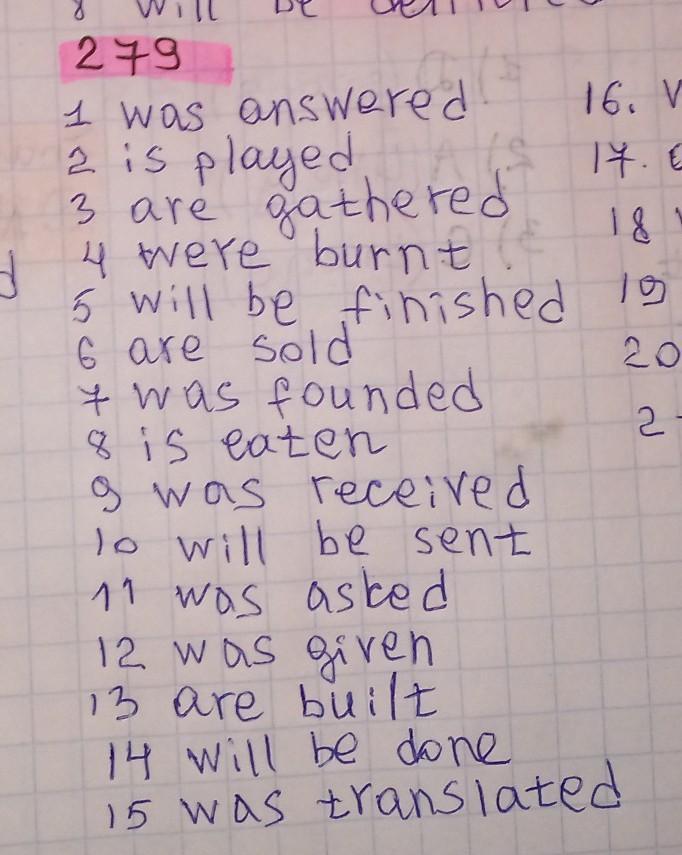 8 will be
279
1 was answered
2 is played
3 are gathered
4 were burnt
5 will be finished
6 are sold
7 was founded
8 is eaten
9 was received
10 will be sent
11 was asked
12 was given
13 are built
14 will be done
15 was translated
16.
17.
18
19
20